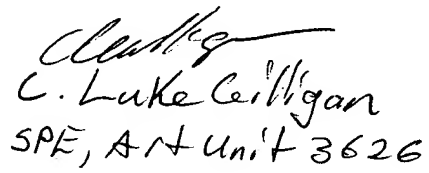 C. Luke Gilligan
SPE, Art Unit 3626